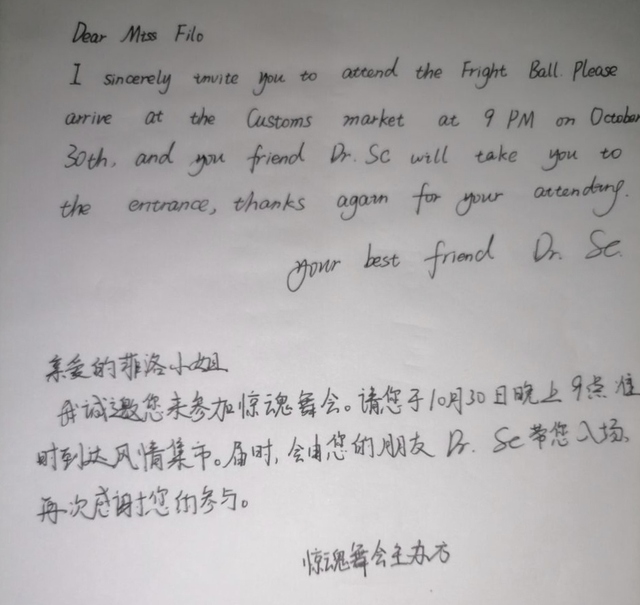 Dear Miss Filo
I sincerely invite you to attend the Fright Ball. Please
arrive at the Customs market at 9 PM on October
30th, and you friend Dr. Sc will take you to
the entrance, thanks again for your attending.
your best friend Dr. Se.
亲爱的菲洛小姐
我诚邀您来参加惊魂舞会。请您于10月30日晚上9点准
时到达风情集市。届时,会由您的朋友Dr. Se带您入场,
再次感谢您的参与。
惊魂舞会主办方